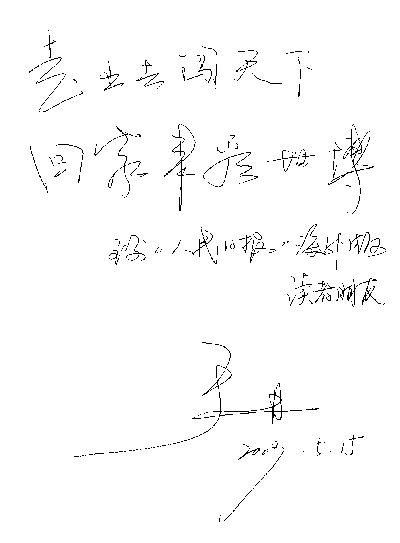 走出去闯天下
回家来看世博
致《人民日报》海外版
读者朋友
2009.5.15